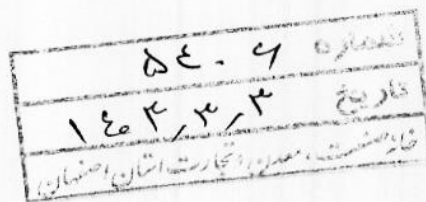 شماره ۵۴۰۶
تاریخ ۱۴۰۳٫۳٫۳
خانه صنعت، معدن و تجارت استان اصفهان